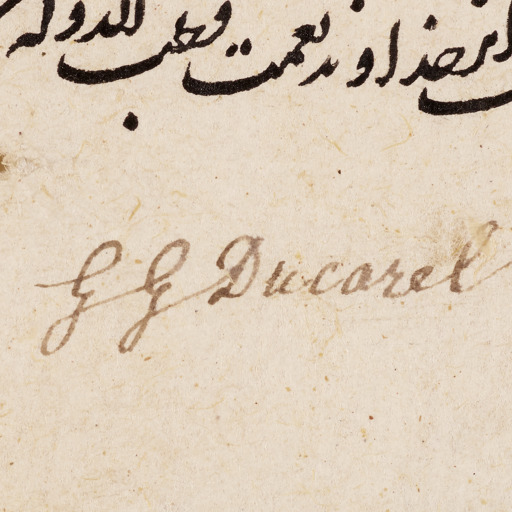 خداوند نعمت قطب الدوله
G G Ducarel